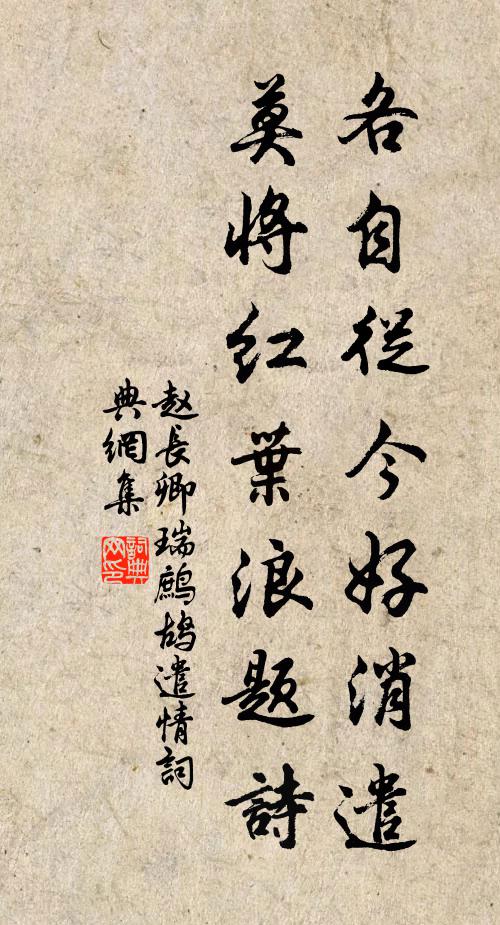 各自從今好消遣
莫將红葉浪题詩
赵長卿瑞鷓鴣遣情詞
典網集
詞典網印